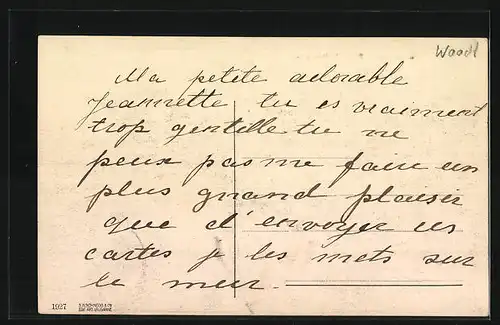 Woodl
Ma petite adorable
Jeannette tu es vraiment
trop gentille tu ne
peux pas me faire un
plus grand plaisir
que d'envoyer ces
cartes je les mets sur
le mur.
1927